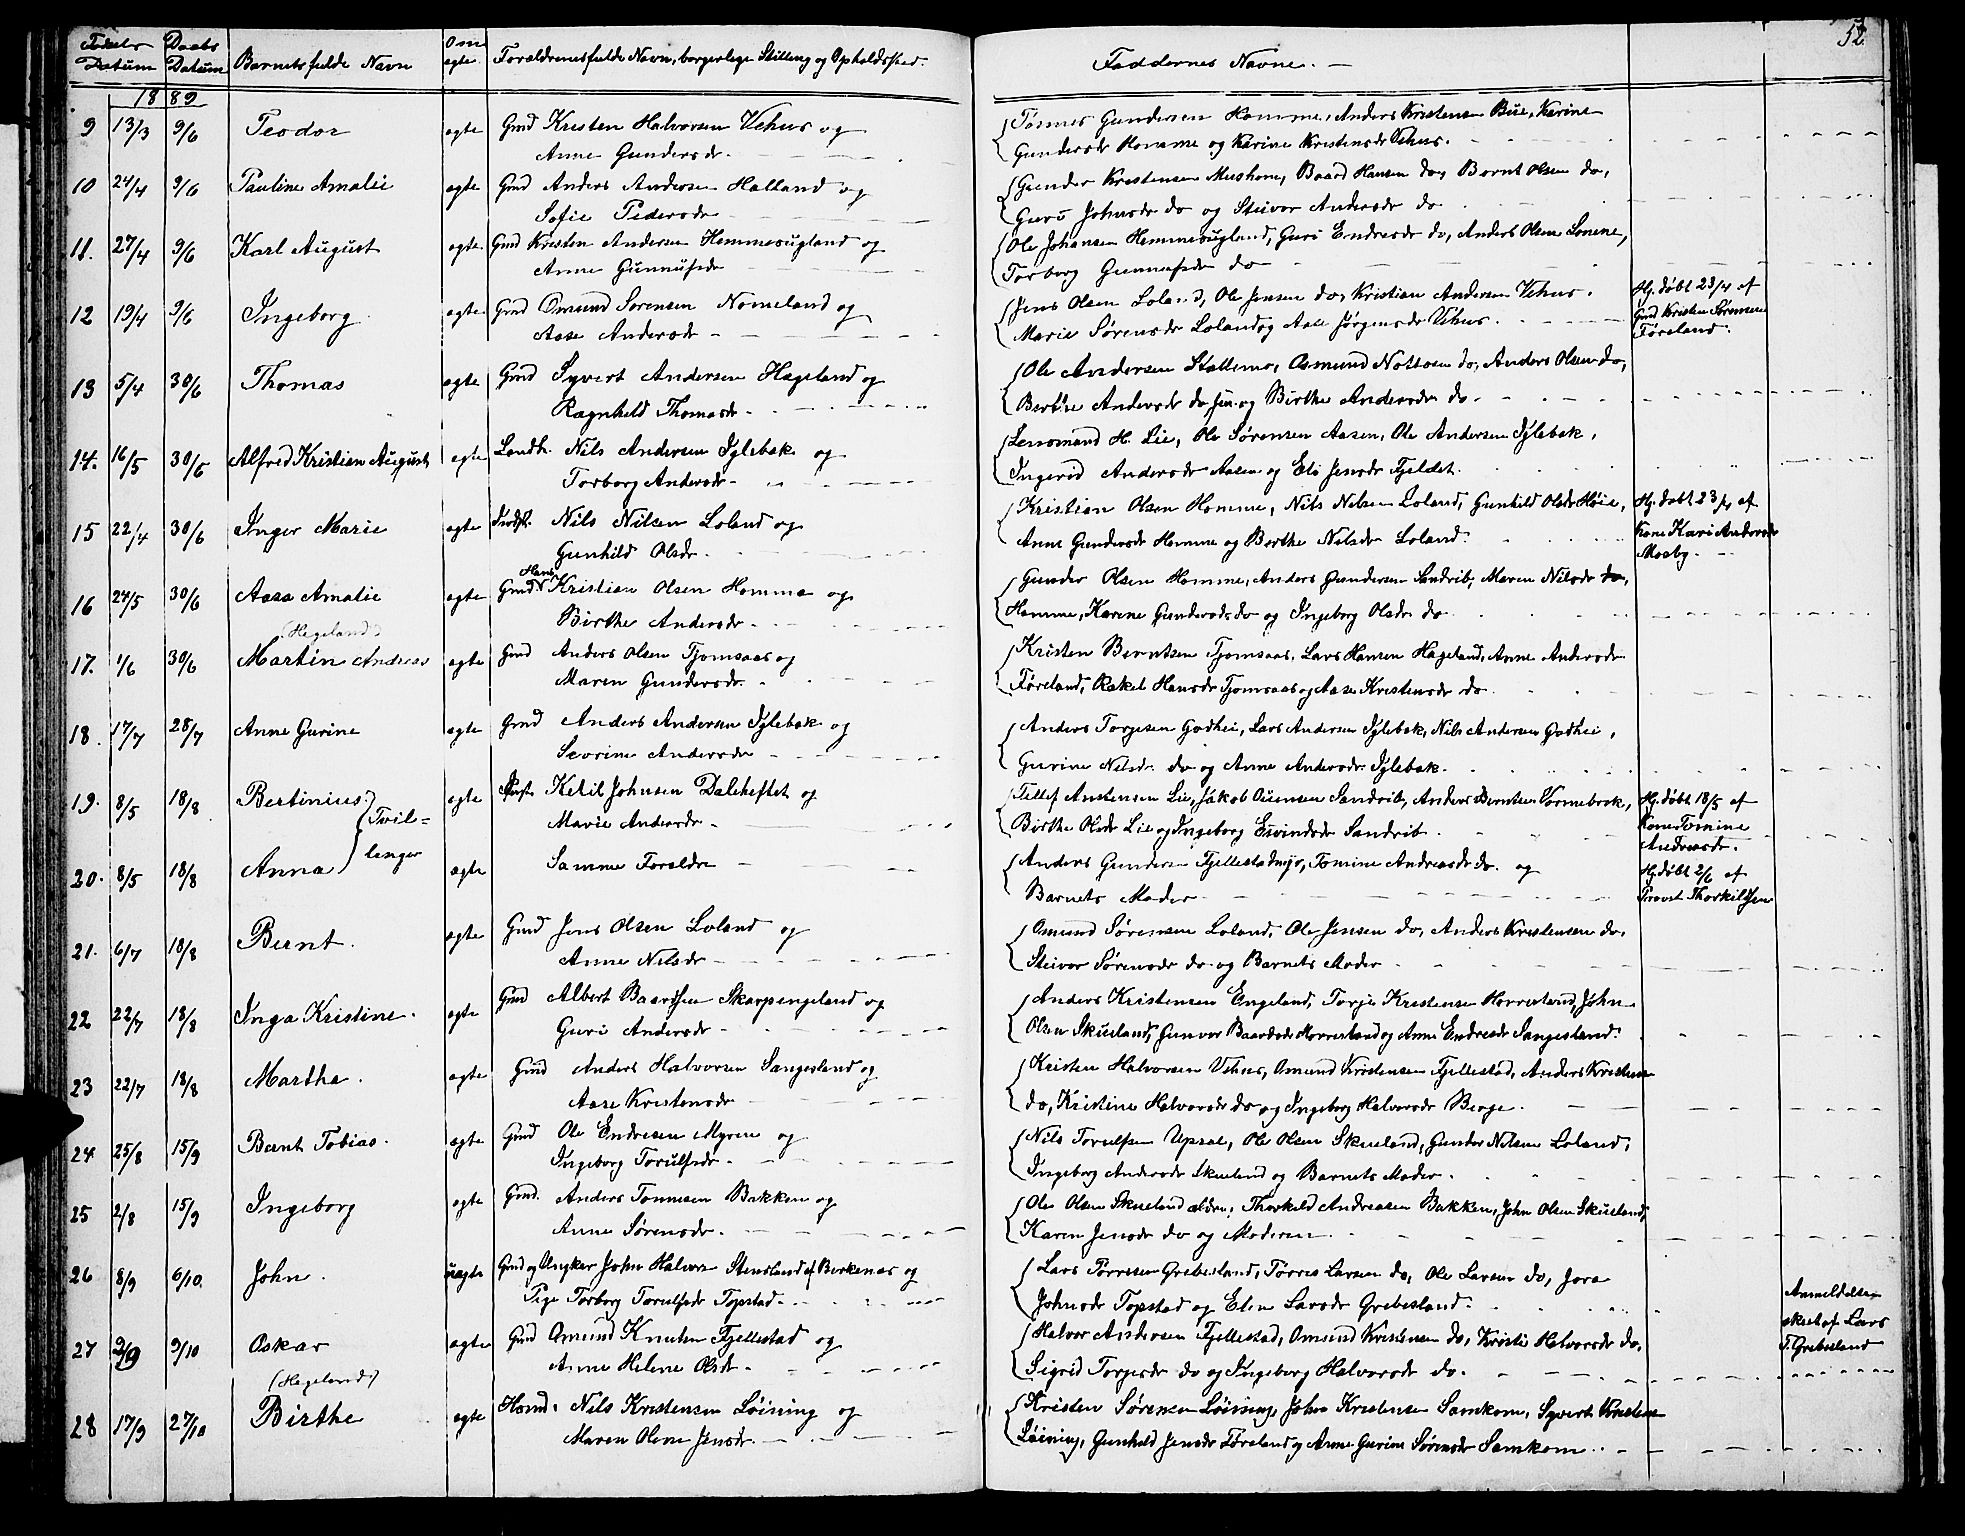 52.
Fødsels Datum Daabs Datum Barnets fulde Navn Om ægte Forældrenes fulde Navn, borgerlige Stilling og Opholdssted. Faddernes Navne.
1889
9 13/3 9/6 Teodor ægte Gmd Kristen Halvorsen Vehus og Tønnes Gundersen Homme, Anders Kristensen Bue, Karine
Anne Gundersdr. Gundersdr Homme og Karine Kristensdr Vehus.
10 24/4 9/6 Pauline Amalie ægte Gmd Anders Andersen Halland og Gunder Kristensen Mushom, Baard Hansen do, Bernt Olsen do,
Sofie Pedersdr Guro Johnsdr do og Steivor Andersdr do
11. 27/4 9/6 Karl August ægte Gmd Kristen Andersen Hemmesugland og Ole Johansen Hemmesugland, Guri Endresdr do, Anders Olsen Lonene,
Anne Gunnufsdr Torborg Gunnufsdr do
12 19/4 9/6 Ingeborg. ægte Gmd Omund Sørensen Nomeland og Jens Olsen Loland, Ole Jensen do, Kristian Andersen Vehus. Hj. døbt 23/4 af
Aase Andersdr Marie Sørensdr Loland og Aase Jørgensdr Vehus. Gmd Kristen Sørensen
Føreland.
13 5/4 30/6 Thomas ægte Gmd Syvert Andersen Hageland og Ole Andersen Stallemo, Osmund Nottosen do, Anders Olsen do,
Ragnhild Thomasdr. Berthe Andersdr do, og Birthe Andersdr do.
14. 16/5 30/6 Alfred Kristian August ægte Landh. Nils Andersen Iglebæk og Lensmand H. Lie, Ole Sørensen Aasen, Ole Andersen Iglebæk,
Torborg Andersdr. Ingerid Andersdr Aasen og Eli Jensdr Fjeldet.
15 22/4 30/6 Inger Marie ægte Nils Nilsen Loland og Kristian Olsen Homme, Nils Nilsen Loland, Gunhild Olsdr Høie, Hj. døbt 23/4 af
Gunhild Olsdr. Anne Gundersdr Homme og Berthe Nilsdr Loland. Kone Kari Andersdr
Mosby.
16 24/5 30/6 Aasa Amalie ægte Gmd Hans Kristian Olsen Homme og Gunder Olsen Homme, Anders Gundersen Sandrib, Maren Nilsdr do,
Birthe Andersdr. Homme, Karine Gundersdr do og Ingeborg Olsdr do.
(Hegeland)
17. 1/6 30/6 Martin Andreas ægte Gmd Anders Olsen Tjomsaas og Kristen Berntsen Tjomsaas, Lars Hansen Hageland, Anne Andersdr
Maren Gundersdr. Føreland, Rakel Hansdr Tjomsaas og Aase Kristensdr do.
18. 17/7 28/7 Anne Gurine ægte Gmd Anders Andersen Iglebæk og Anders Torgesen Godhei, Lars Andersen Iglebæk, Nils Andersen Godhei,
Severine Andersdr Gurine Nilsdr. do og Anne Andersdr Iglebæk.
19. 8/5 18/8 Bertinius Tvil= ægte Ketil Johnsen Daleheftet og Tellef Anstensen Lie, Jakob Ouensen Sandrib, Anders Berntsen Vormebrok, Hj. døbt 18/5 af
Marie Andersdr. Birthe Olsdr Lie og Ingeborg Eivindsdr Sandrib. Kone Tomine
Andreasdr.
20. 8/5 18/8 Anna linger ægte Samme Forældre Anders Gundersen Fjellestadmyr, Tomine Andreasdr do og Hj. døbt 2/6 af
Barnets Moder. Provst Thorkildsen
21. 6/7 18/8 Bernt. ægte Gmd Jens Olsen Loland og Omund Sørensen Loland, Ole Jensen do, Anders Kristensen do,
Anne Nilsdr Steivor Sørensdr do og Barnets Moder
22 22/7 18/8 Inga Kristine. ægte Gmd Albert Baardsen Skarpengeland og Anders Kristensen Engeland, Torje Kristensen Horresland, John
Guri Andersdr Olsen Skueland, Gunvor Baardsdr Horresland og Anne Endresdr Sangesland.
23 22/7 18/8 Marthe. ægte Gmd Anders Halvorsen Sangesland og Kristen Halvorsen Vehus, Omund Kristensen Fjellestad, Anders Kristensen
Aase Kristensdr do, Kristine Halvorsdr do og Ingeborg Halvorsdr Berge.
24 25/8 15/9 Bernt Tobias. ægte Gmd Ole Endresen Myren og Nils Torulfsen Upsal, Ole Olsen Skueland, Gunder Nilsen Loland,
Ingeborg Torulfsdr. Ingeborg Andersdr Skueland og Barnets Moder.
25 2/8 15/9 Ingeborg ægte Gmd. Anders Tomesen Bakken og Ole Olsen Skueland ældre, Thorkild Andreasen Bakken, John Olsen Skueland,
Anne Sørensdr. Karen Jensdr do og Moderen.
26 8/9 6/10 John. uægte Gmd og Ungkar John Halvors Stensland af Birkenæs og Lars Torresen Grebesland, Tørres Larsen do, Ole Larsen do, Jora
Pige Torborg Torulfsdr Topstad. Johnsdr Topstad og Elen Larsdr Grebesland. Anmeldelsen
skeet af Lars
T. Grebesland
27 2/9 9/10 Oskar ægte Gmd Omund Knutsen Fjellestad og Halvor Andersen Fjellestad, Omund Kristensen do, Kristi Halvorsdr do,
Anne Helene Olsdr. Sigrid Torgesdr do og Ingeborg Halvorsdr do.
(Hegeland)
28 17/9 27/10 Birthe ægte Hmd. Nils Kristensen Løining og Kristen Sørensen Løining, John Kristensen Samkom, Syvert Kristensen
Maren Olene Jensdr. Løining, Gunhild Jensdr Føreland og Anne Gurine Sørensdr Samkom.